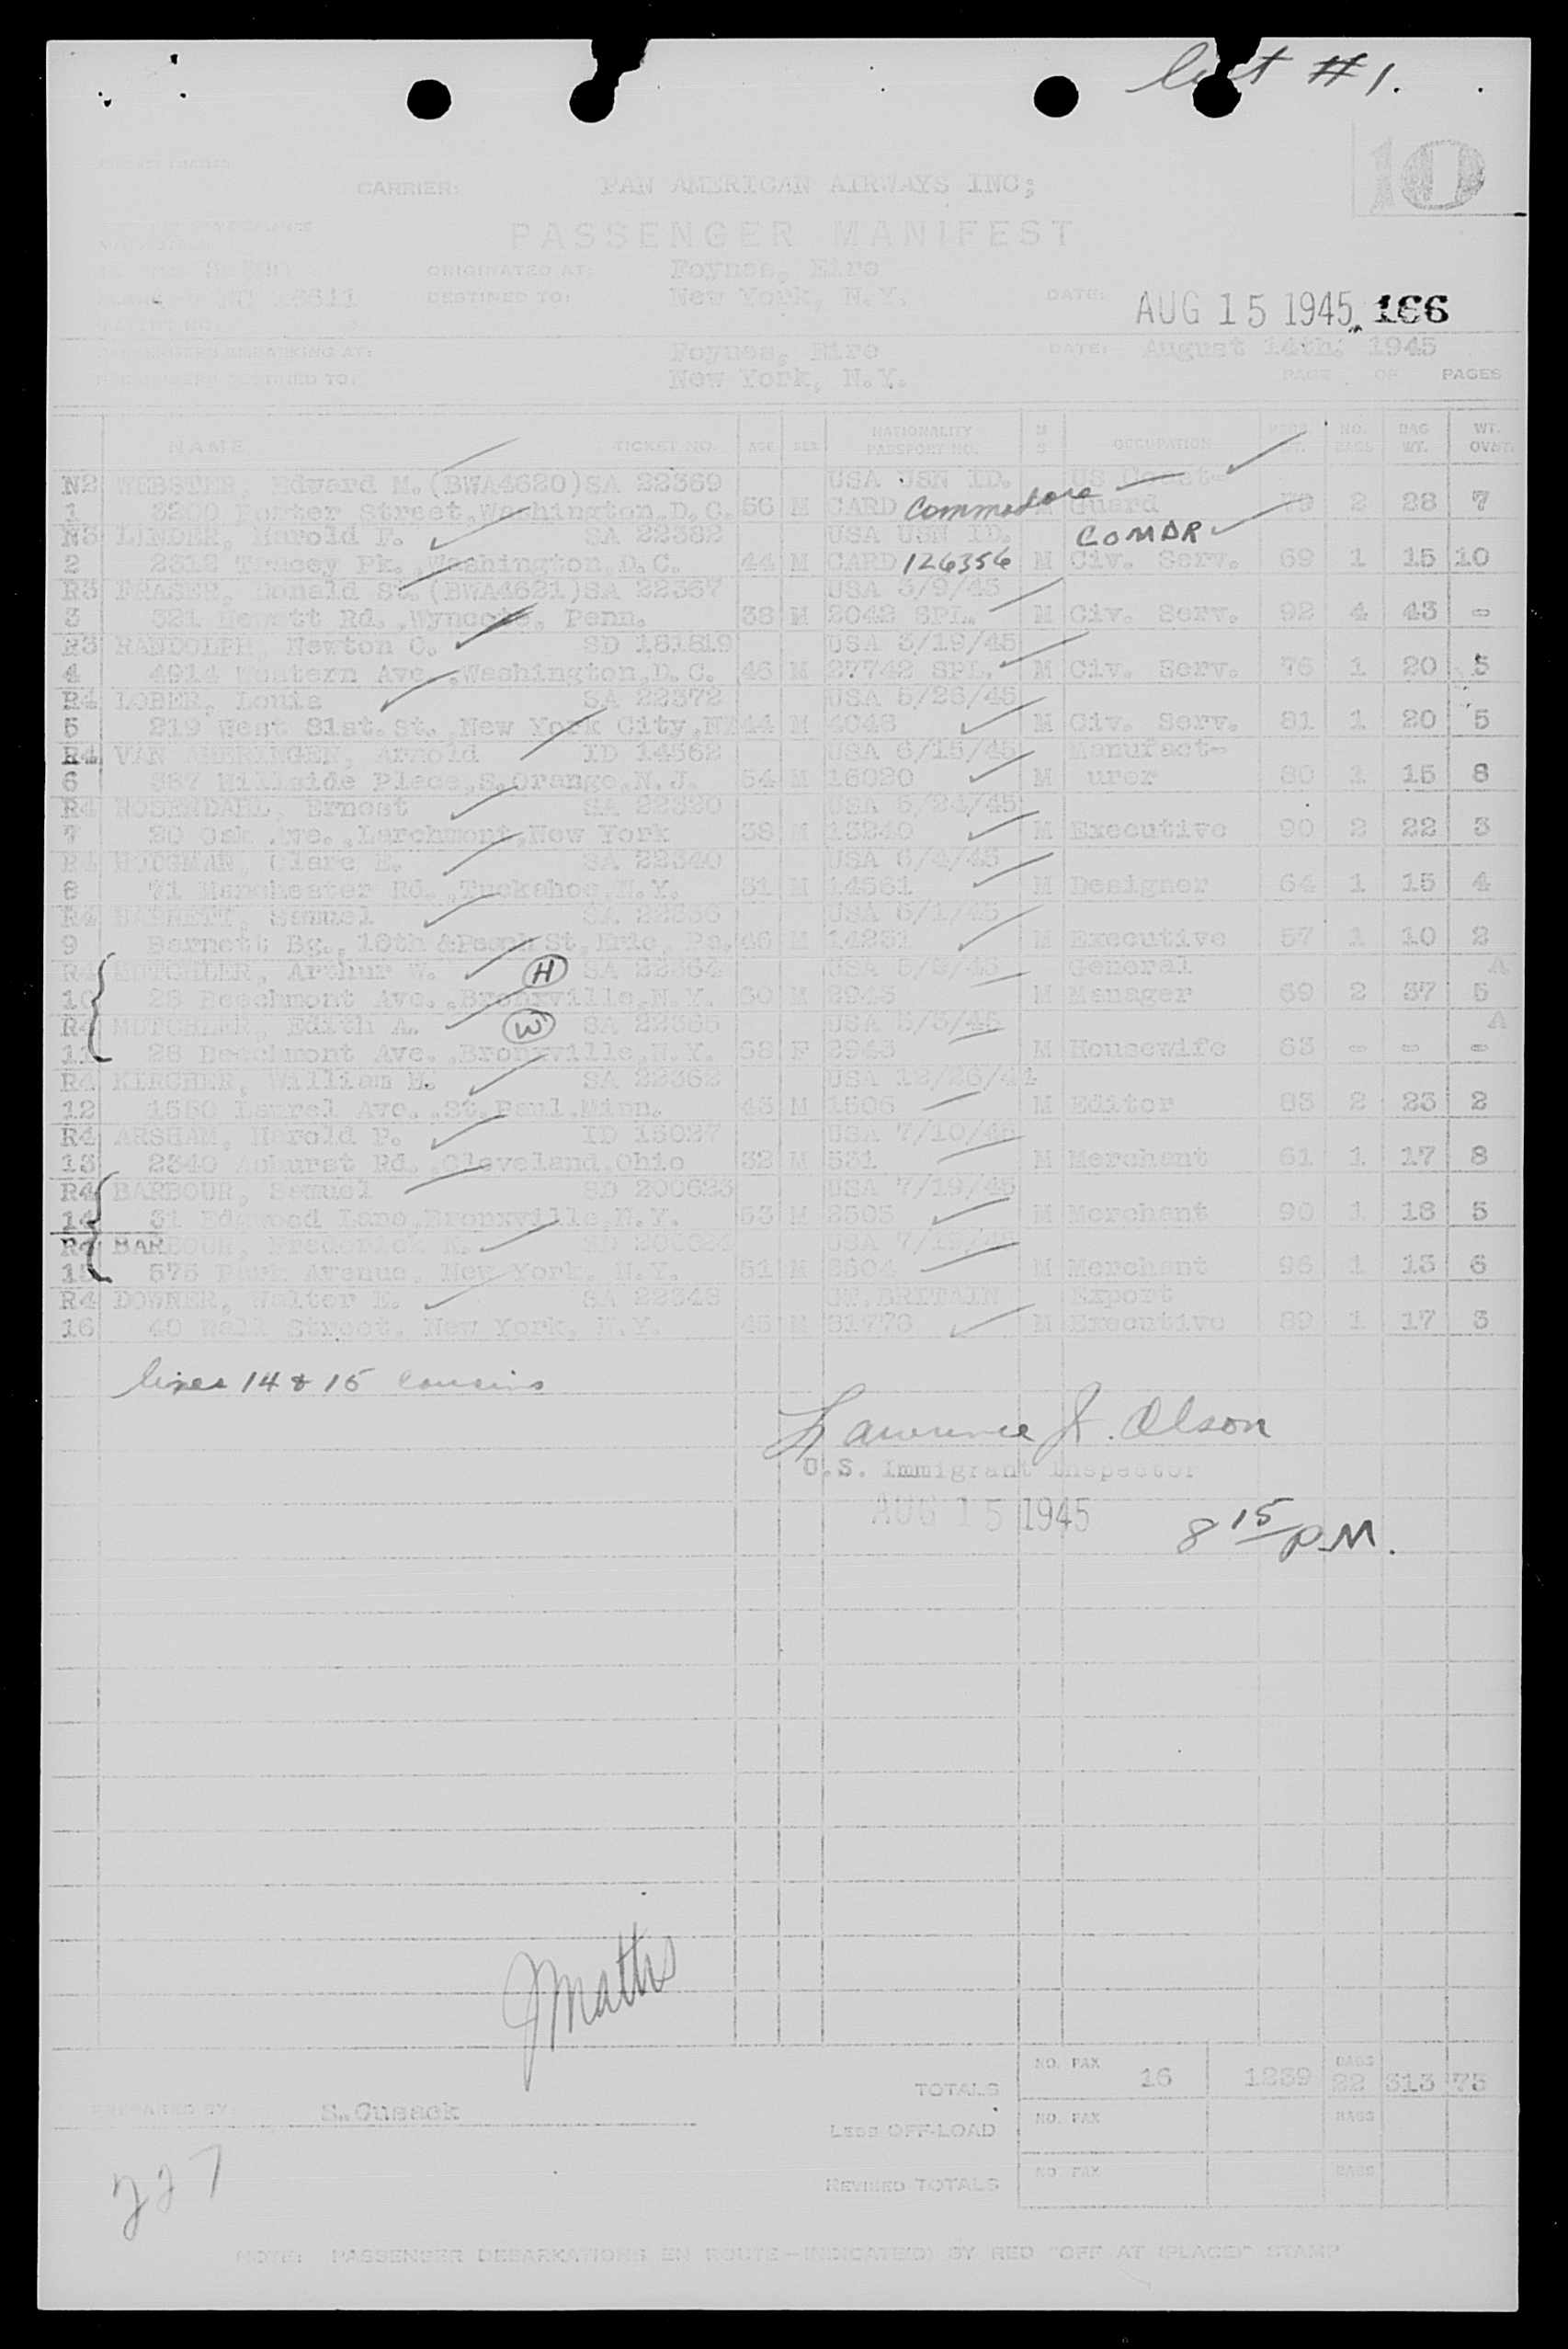 list #1.
10
CARRIER: PAN AMERICAN AIRWAYS INC;
PASSENGER MANIFEST
ORIGINATED AT: Foynes, Eire
DESTINED TO: New York, N.Y. DATE: AUG 15 1945 166
PASSENGERS EMBARKING AT: Foynes, Eire DATE: August 14th. 1945
PASSENGERS DESTINED TO: New York, N.Y. PAGE OF PAGES
NAME TICKET NO. AGE SEX NATIONALITY PASSPORT NO. M S OCCUPATION NO. BAGS BAG WT. WT. OVST.
N2 WEBSTER, Edward M.(BWA4620)SA 22369 USA USN ID. US Coast-
1 3200 Porter Street,Washington,D.C. 56 M CARD Commodore Guard 79 2 28 7
N3 LINDER, Harold F. SA 22382 USA USN ID. COMDR
2 2312 Tracey Pk.,Washington,D.C. 44 M CARD 126356 M Civ. Serv. 69 1 15 10
R3 FRASER, Donald St.(BWA4621)SA 22367 USA 3/9/45
3 321 Hewett Rd.,Wyncote, Penn. 38 M 2042 SPL. M Civ. Serv. 92 4 43 -
R3 RANDOLPH, Newton C. SD 181819 USA 3/19/45
4 4914 Western Ave.,Washington,D.C. 46 M 27742 SPL. M Civ. Serv. 76 1 20 5
R4 LOBER, Louis SA 22372 USA 5/26/45
5 219 West 81st.St.,New York City,NY 44 M 4048 M Civ. Serv. 81 1 20 5
R4 VAN AMERINGEN, Arnold ID 14562 USA 6/15/45 Manufact-
6 387 Hillside Place,S.Orange,N.J. 54 M 16020 M urer 80 1 15 8
R4 ROSENDAHL, Ernest SA 22320
7 20 Oak Ave.,Larchmont,New York 38 M 13240 M Executive 90 2 22 3
R4 Clare E. SA 22340 USA 6/4/45
8 71 Manchester Rd.,Tuckahoe,N.Y. 31 M 14561 M Designer 64 1 15 4
R4 BARNETT, Samuel USA 6/1/45
9 Barnett Bg., 18th &Peach St,Erie, Pa. 46 M 14231 M Executive 57 1 10 2
R4 MUTCHLER, Arthur W. H SA 22364 General A
10 28 Beechmont Ave.,Bronxville,N.Y. 60 M 2943 M Manager 69 2 37 5
R4 MUTCHLER, Edith A. W SA 22365 USA 5/3/45 A
11 28 Beechmont Ave.,Bronxville,N.Y. 58 F 2943 M Housewife 63 - - -
R4 KIRCHER, William M. SA 22362 USA 12/26/44
12 1550 Laurel Ave.,St.Paul,Minn. 43 M 1506 M Editor 83 2 23 2
R4 ARSHAM, Harold P. ID 15027 USA 7/10/45
13 2340 Rd.,Cleveland,Ohio 32 M 531 M Merchant 61 1 17 8
R4 BARBOUR, Samuel SD 200623 USA 7/19/45
14 31 Edgewood Lane,Bronxville,N.Y. 53 M 2503 M Merchant 90 1 18 5
R4 BARBOUR, Frederick K.
15 575 Park Avenue, New York, N.Y. 51 M 2504 M Merchant 96 1 13 6
R4 DOWNER, Walter E. SA 22348 GT.BRITAIN Export
16 40 Wall Street, New York, N.Y. 45 M 31776 M Executive 89 1 17 3
lines 14 & 15 cousins
Lawrence J. Olson
U.S. Immigrant Inspector
AUG 15 1945
8 15 P.M.
JMathis
NO. PAX BAGS
TOTALS 16 1239 22 313 73
PREPARED BY: S.Cusack
LESS OFF-LOAD NO. PAX BAGS
227
REVISED TOTALS NO. PAX BAGS
NOTE: PASSENGER DEBARKATIONS EN ROUTE-INDICATE(D) BY RED "OFF AT (PLACE)" STAMP